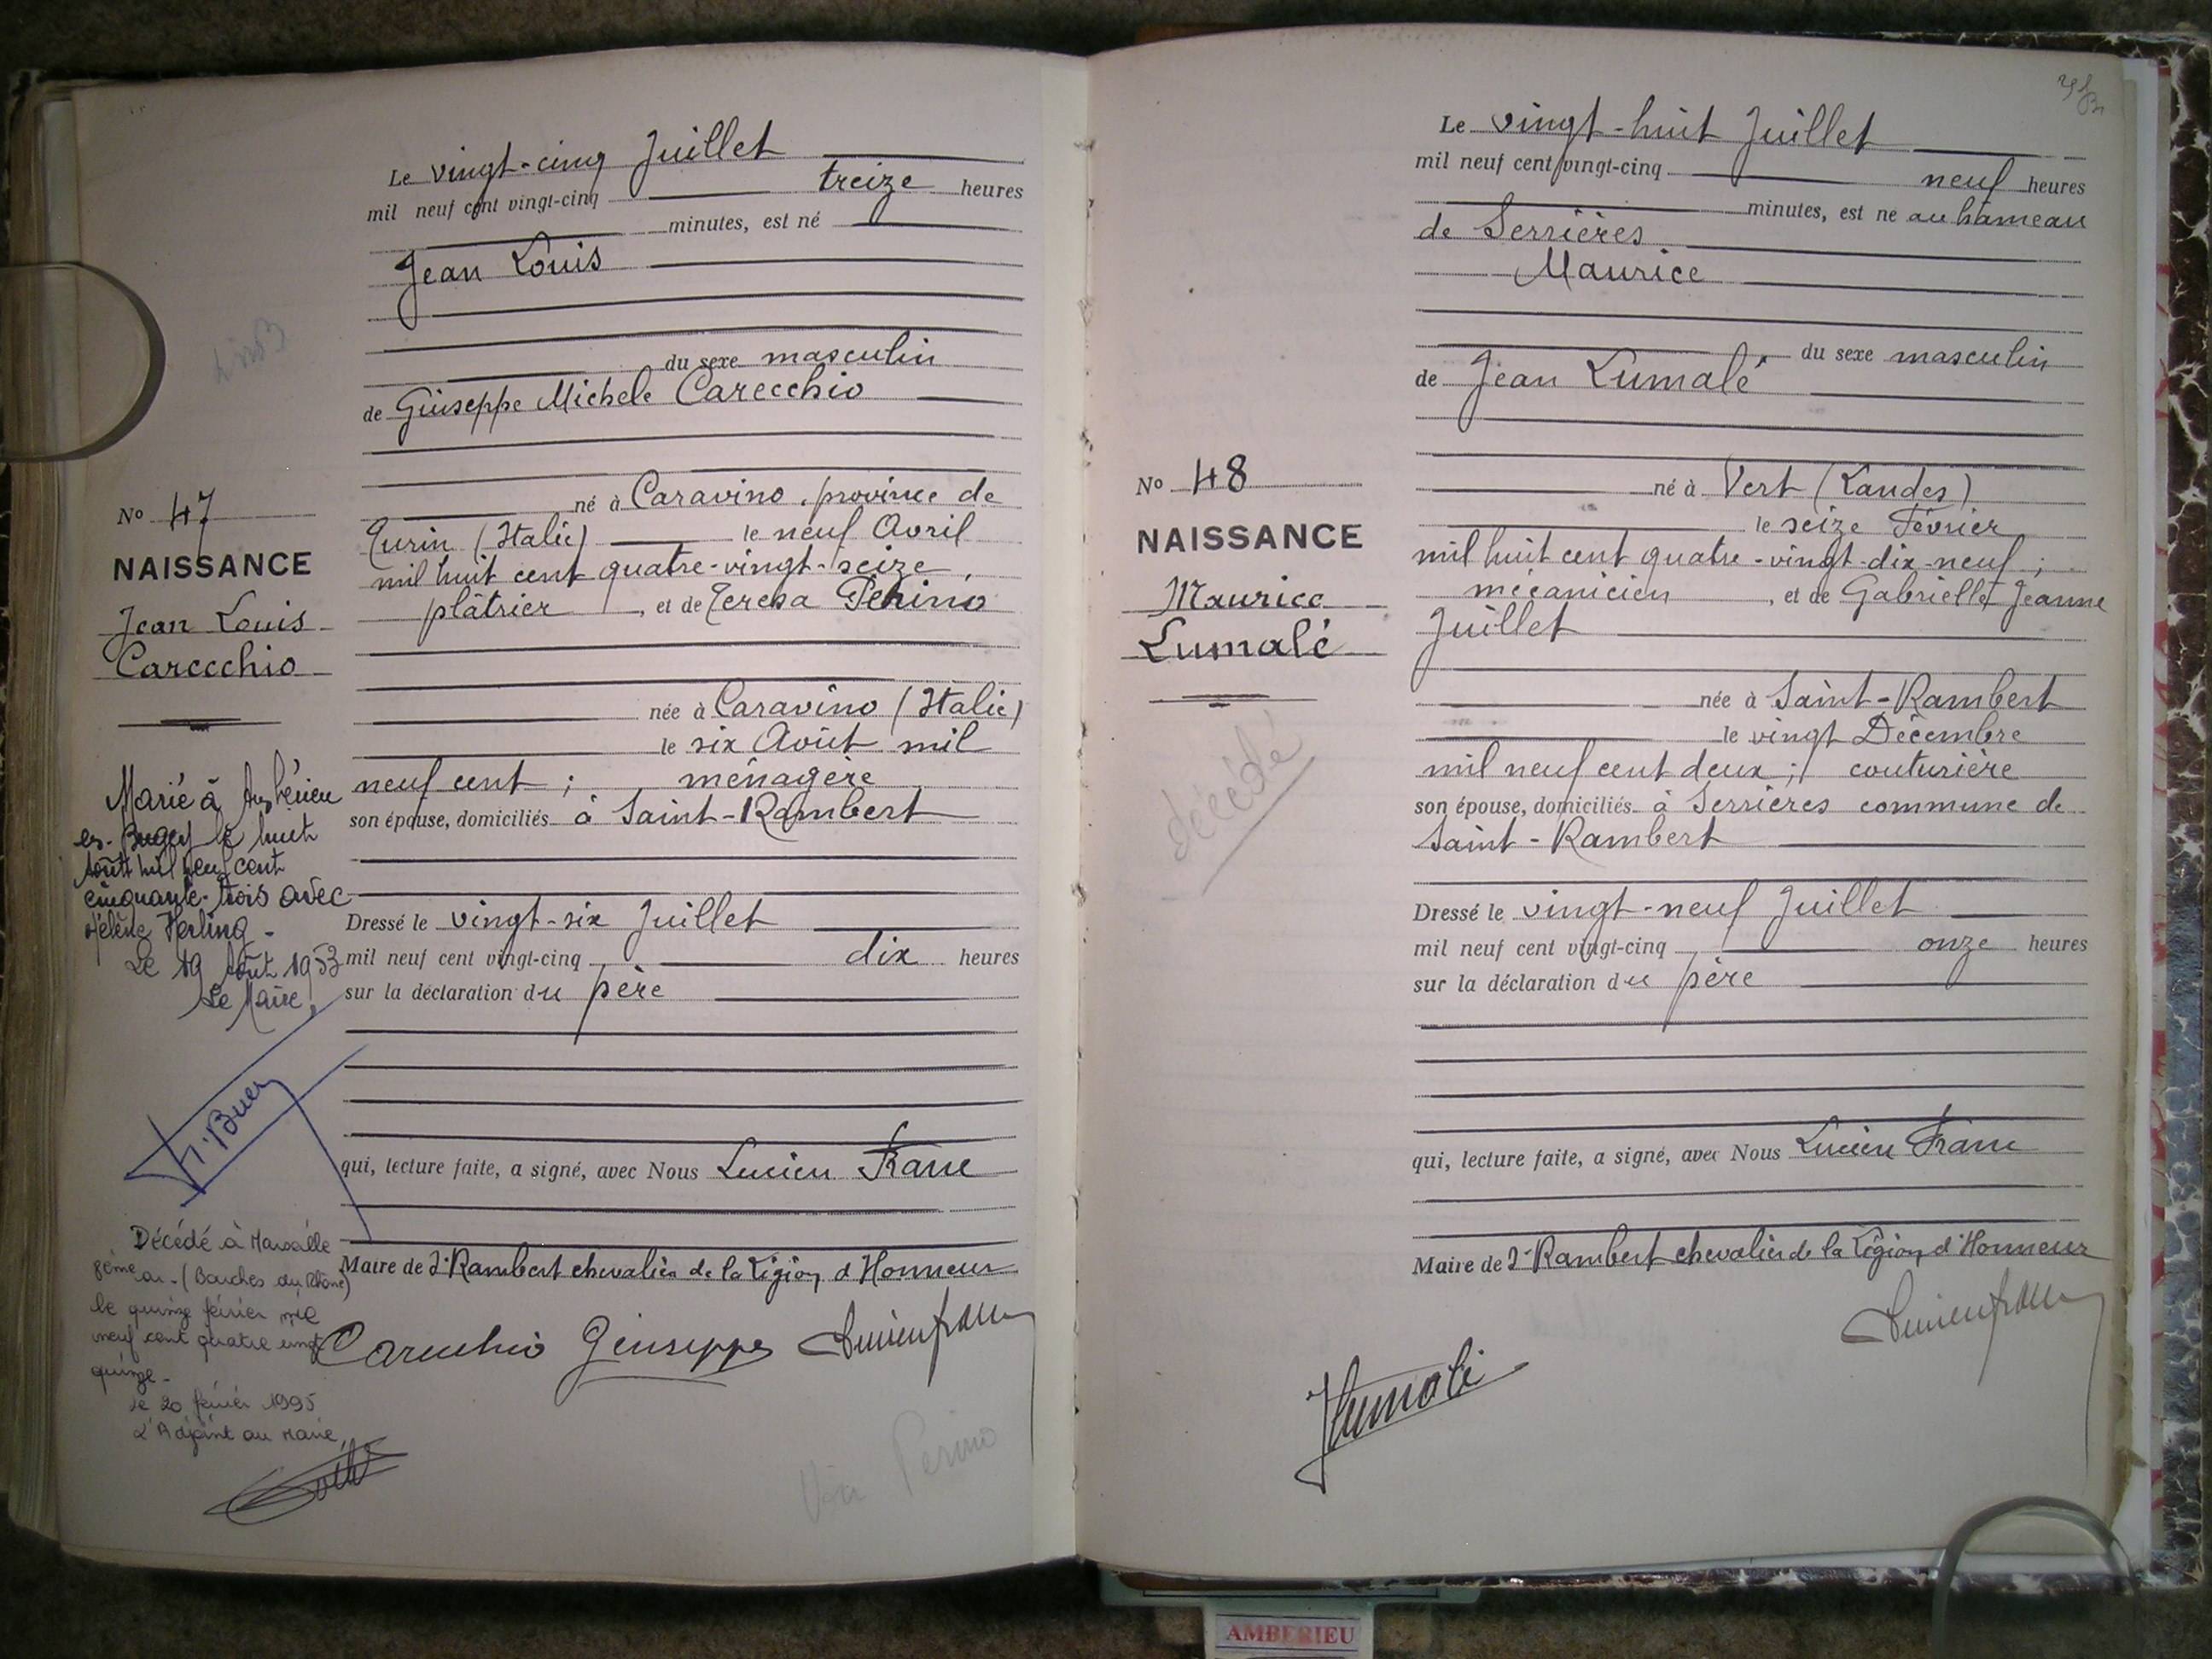 Le vingt-cinq Juillet
mil neuf cent vingt-cinq treize heures
minutes, est né
Jean Louis
du sexe masculin
de Giuseppe Michele Carecchio
né à Caravino, province de
Turin (Italie) le neuf Avril
mil huit cent quatre-vingt-seize,
plâtrier, et de Teresa Perino
née à Caravino (Italie)
le six Août mil
neuf cent ; ménagère
son épouse, domiciliés à Saint-Rambert
Dressé le vingt-six Juillet
mil neuf cent vingt-cinq dix heures
sur la déclaration du père
qui, lecture faite, a signé, avec Nous Lucien Franc
Maire de St Rambert chevalier de la Légion d'Honneur
Carecchio Giuseppe Lucien franc
Voir Perino
No 47
NAISSANCE
Jean Louis
Carecchio
Marié à Ambérieu
en-Bugey le huit
Août mil neuf cent
cinquante-trois avec
Hélène Herling -
Le 19 Août 1953
Le Maire,
Décédé à Marseille
8ème ar - (Bouches du Rhône)
le quinze février mil
neuf cent quatre vingt
quinze -
le 20 février 1995
L'Adjoint au Maire,
Le vingt-huit Juillet
mil neuf cent vingt-cinq neuf heures
minutes, est né au hameau
de Serrières
Maurice
du sexe masculin
de Jean Lumalé
né à Vert (Landes)
le seize Février
mil huit cent quatre-vingt-dix-neuf ;
mécanicien, et de Gabrielle Jeanne
Juillet
née à Saint-Rambert
le vingt Décembre
mil neuf cent deux ; couturière
son épouse, domiciliés à Serrières commune de
Saint-Rambert
Dressé le vingt-neuf Juillet
mil neuf cent vingt-cinq onze heures
sur la déclaration du père
qui, lecture faite, a signé, avec Nous Lucien Franc
Maire de St Rambert chevalier de la Légion d'Honneur
Lucien franc
JLumalé
No 48
NAISSANCE
Maurice
Lumalé
décédé
AMBERIEU